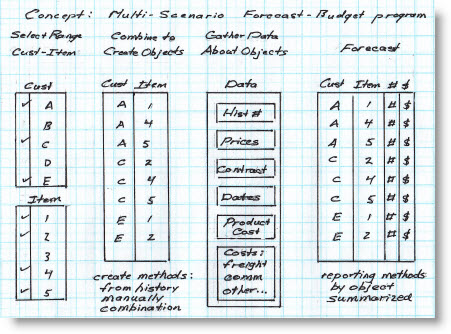 Concept: Multi-Scenario Forecast-Budget program
Select Range
Cust-Item
Combine to
Create Objects
Gather Data
About Objects
Forecast
Cust
A
B
C
D
E
Item
1
2
3
4
5
Cust Item
A 1
A 4
A 5
C 2
C 4
C 5
E 1
E 2
create methods:
from history
manually
combination
Data
Hist #
Prices
Contract
Dates
Product
Cost
Costs:
freight
comm
other...
Cust Item # $
A 1 # $
A 4 # $
A 5 # $
C 2 # $
C 4 # $
C 5 # $
E 1 # $
E 2 # $
reporting methods
by object
summarized